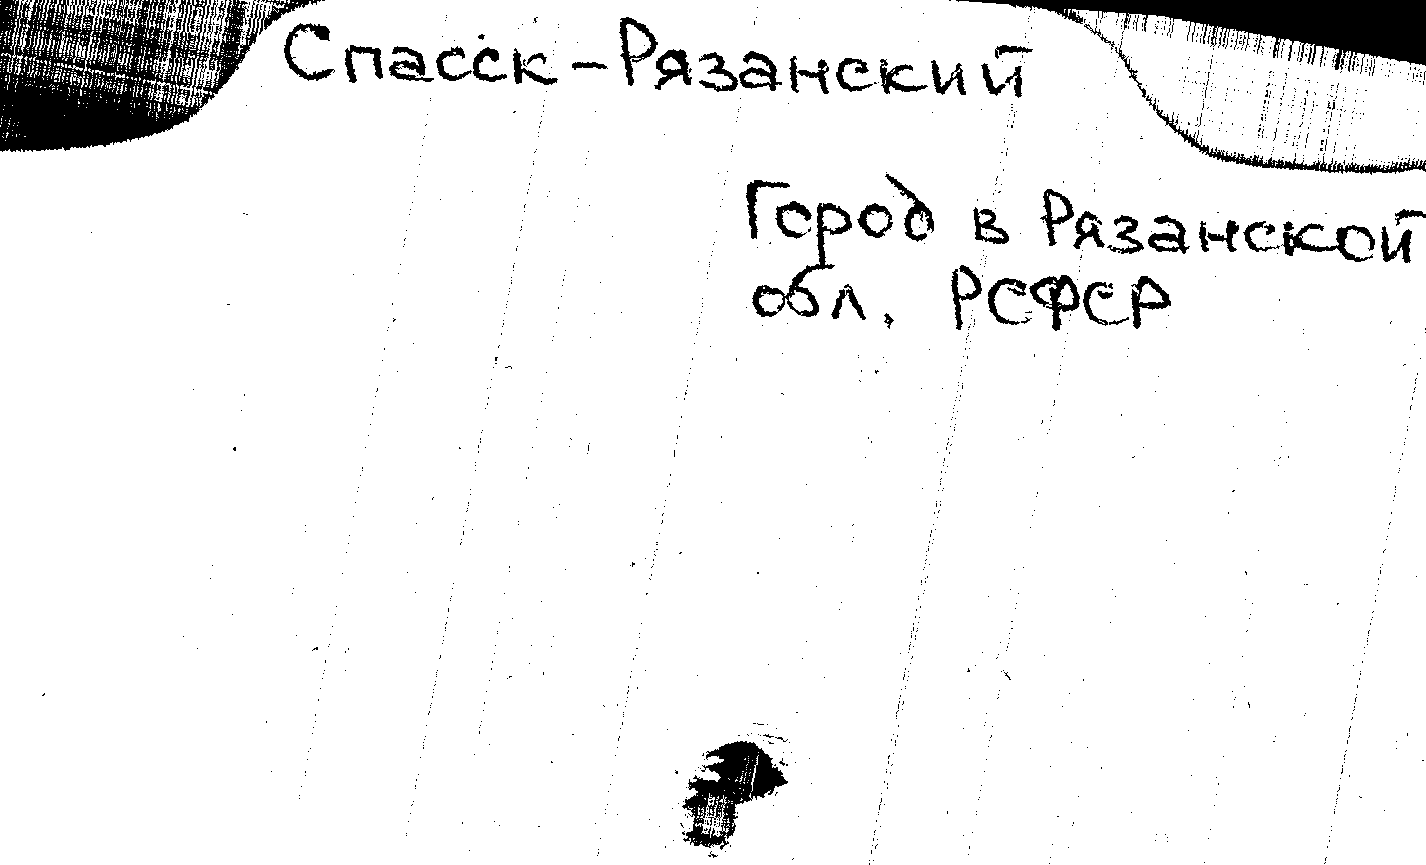 Спасск-Рязанский
Город в Рязанской
обл. РСФСР